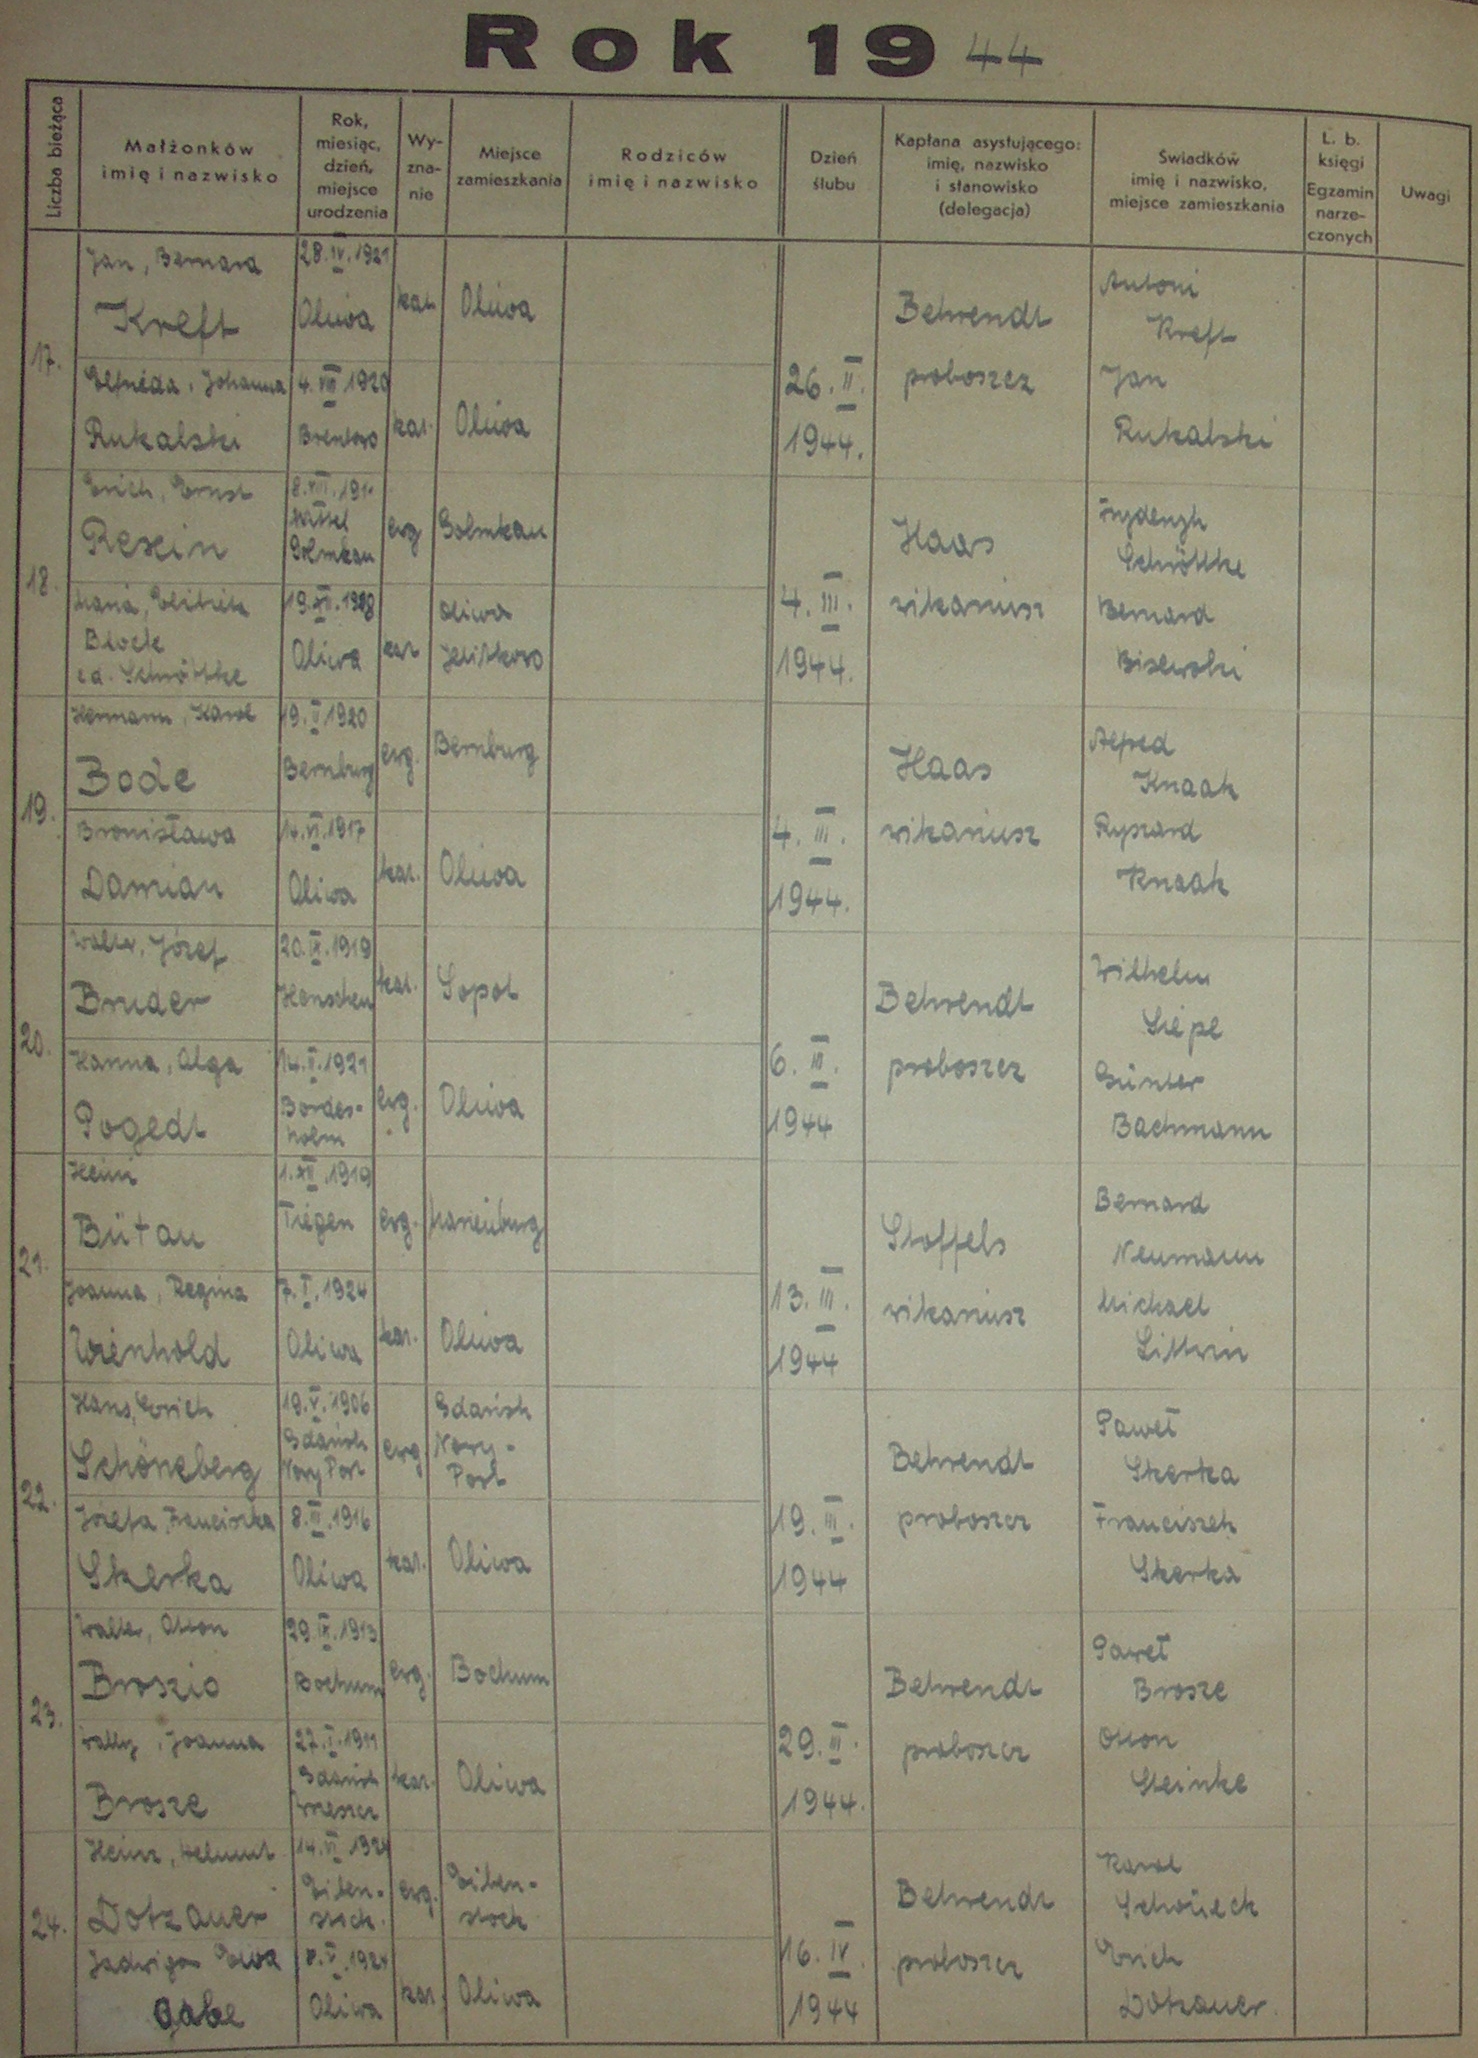 Rok 1944
Liczba bieżąca
Małżonków
imię i nazwisko
Rok,
miesiąc,
dzień,
miejsce
urodzenia
Wy-
zna-
nie
Miejsce
zamieszkania
Rodziców
imię i nazwisko
Dzień
ślubu
Kapłana asystującego:
imię, nazwisko
i stanowisko
(delegacja)
Świadków
imię i nazwisko,
miejsce zamieszkania
L. b.
księgi
Egzamin
narze-
czonych
Uwagi
17.
Jan, Bernard
Kreft
28.IV.1921
Oliwa
kat
Oliwa
Elfrieda, Johanna
Rukalski
4.VIII.1920
Brentowo
kat.
Oliwa
26.II.
1944.
Behrendt
proboszcz
Antoni
Kreft
Jan
Rukalski
18.
Erich, Ernst
Rexin
8.VIII.191
Mittel
Golmkau
ewg
Golmkau
Maria,
Block
Schröttke
19.XII.
Oliwa
kat
Oliwa
Jelitkowo
4.III.
1944.
Haas
wikariusz
Fryderyk
Schröttke
Bernard
Bisewski
19.
Hermann, Karol
Bode
19.II.1920
Bernburg
ewg.
Bernburg
Bronisława
Damian
14.VI.1917
Oliwa
kat.
Oliwa
4.III.
1944.
Haas
wikariusz
Alfred
Knaak
Ryszard
Knaak
20.
Walter, Józef
Bruder
20.IX.1919
kat.
Sopot
Hanna, Olga
Pogedt
14.II.1921
Bordes-
holm
ewg.
Oliwa
6.III.
1944
Behrendt
proboszcz
Wilhelm
Siepe
Günter
Bachmann
21.
Heini
Bütau
1.XII.1919
Tiegen
ewg.
Marienburg
Joanna, Regina
Wienhold
7.I.1924
Oliwa
kat.
Oliwa
13.III.
1944
Stoffels
wikariusz
Bernard
Neumann
Michael
Littwin
22.
Hans, Erich
Schöneberg
19.V.1906
Gdańsk
Nowy Port
ewg
Gdańsk
Nowy-
Port
Józefa, Franciszka
Skerka
8.III.1916
Oliwa
kat.
Oliwa
19.III.
1944
Behrendt
proboszcz
Paweł
Skerka
Franciszek
Skerka
23.
Walter, Otton
Broszio
29.IX.1913
Bochum
ewg.
Bochum
Wally, Joanna
Brosze
27.I.1911
Gdańsk
Wrzeszcz
kat.
Oliwa
29.III.
1944.
Behrendt
proboszcz
Paweł
Brosze
Otton
Steinke
24.
Heinz, Helmut
Dotzauer
14.VI.1921
Eiben-
stock.
ewg.
Eiben-
stock
Jadwiga Ewa
Gabe
V.1924
Oliwa
kat.
Oliwa
16.IV.
1944
Behrendt
proboszcz
Karol
Erich
Dotzauer.